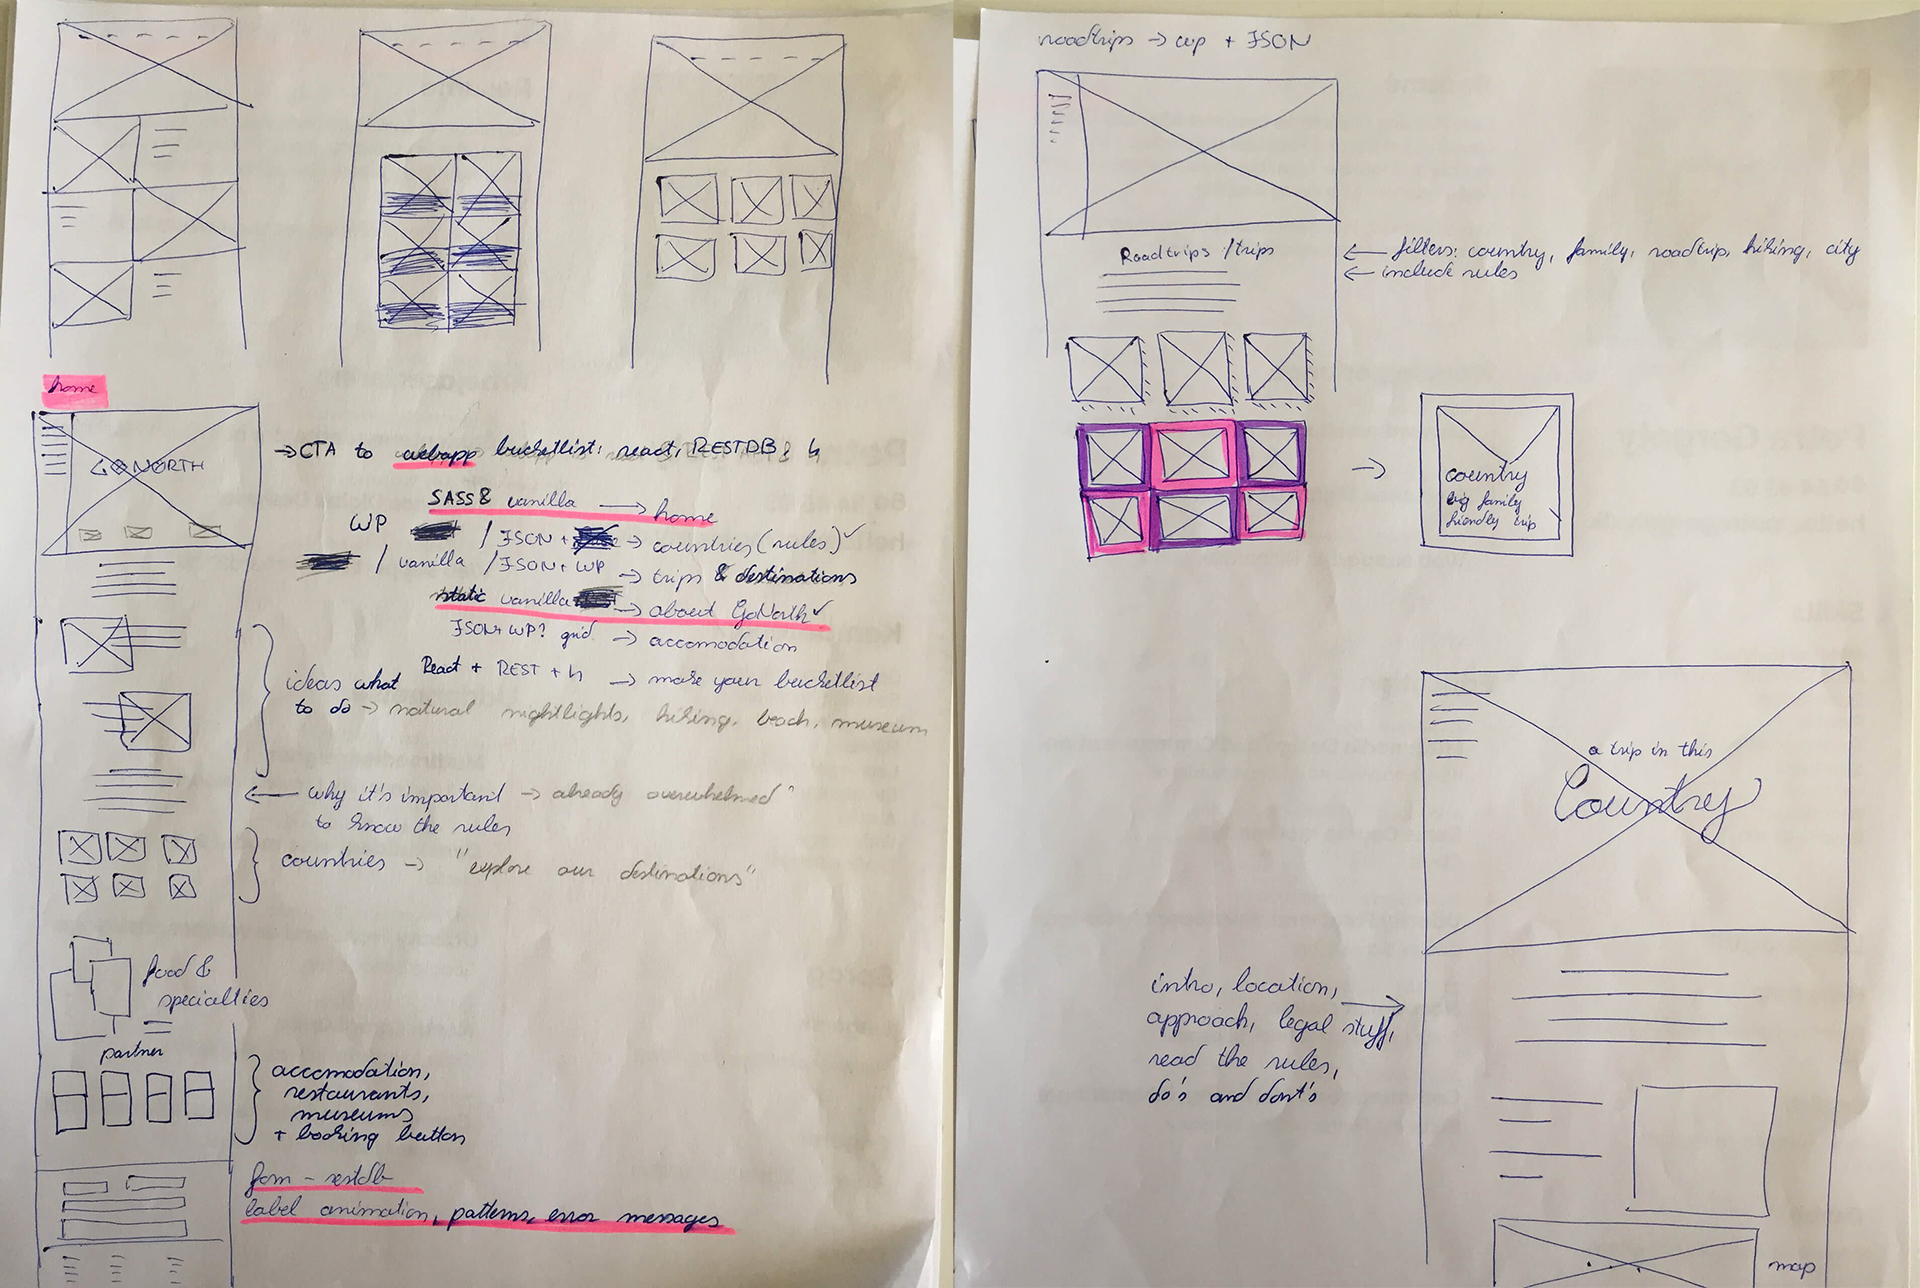 home
GO NORTH
→ CTA to webapp bucketlist: react, RESTDB & h
SASS & vanilla → home
WP / JSON + → countries (rules) ✓
/ vanilla / JSON + WP → trips & destinations
static vanilla → about GoNorth ✓
JSON + WP? grid → accomodation
React + REST + h → make your bucketlist
ideas what
to do → natural nightlights, hiking, beach, museum
← why it's important → already overwhelmed"
to know the rules
countries → "explore our destinations"
food &
specialties
partner
accomodation,
restaurants,
museums
+ booking button
form - restdb
label animation, patterns, error messages
roadtrips → wp + JSON
Roadtrips / trips
← filters: country, family, roadtrip, hiking, city
← include rules
→
country
big family
friendly trip
a trip in this
Country
intro, location,
approach, legal stuff,
read the rules,
do's and dont's
map